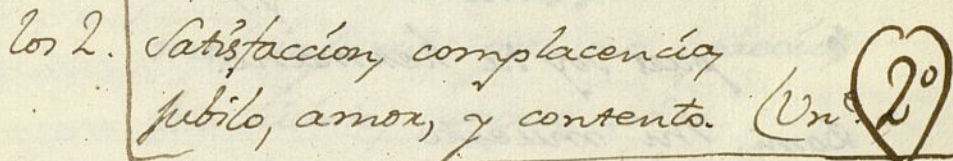 los 2. Satisfaccion, complacencia,
jubilo, amor, y contento. (Un.º 2º